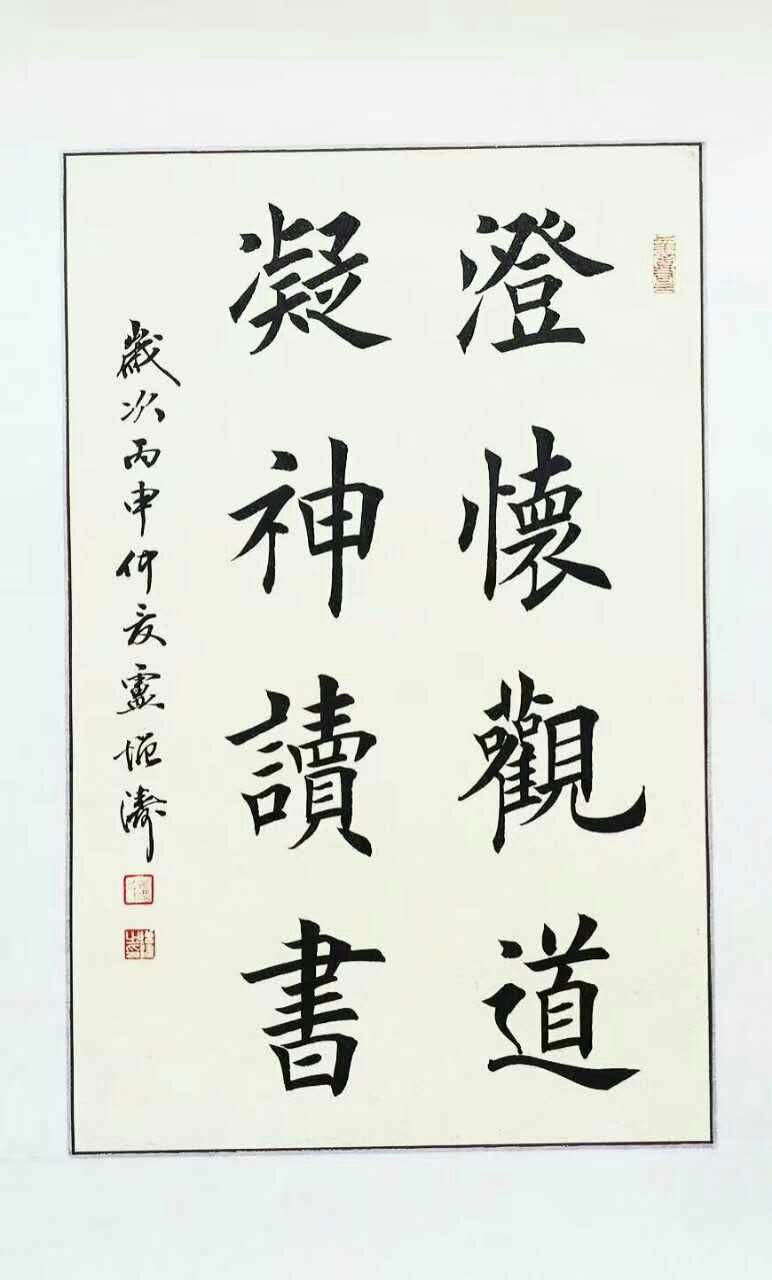 澄懷觀道
凝神讀書
歲次丙申仲夏盧恒濤